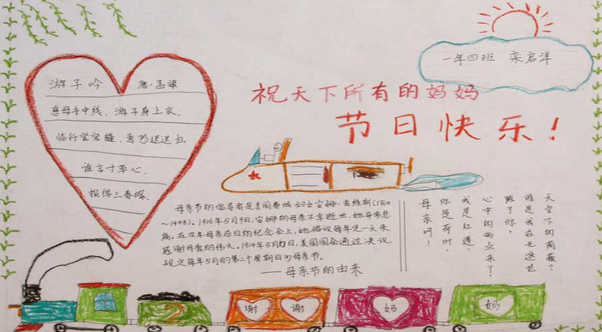 一年四班 栾启洋
祝天下所有的妈妈
节日快乐！
游子吟 唐·孟郊
慈母手中线，游子身上衣。
临行密密缝，意恐迟迟归。
谁言寸草心，
报得三春晖。
母亲节的倡导者是美国费城妇女安娜·
1906年5月9日，安娜的母亲不幸逝世，她
在次年母亲逝日的纪念会上，她倡议每年定一天来
感谢母爱的伟大。1914年5月 日，美国国会通过决议
规定每年5月的第二个星期日为母亲节。
——母亲节的由来
母亲啊！
你是荷叶，
我是红莲，
心中的雨点来了，
除了你，
谁是我在无遮拦
天空下的荫蔽？
谢 谢 妈 妈